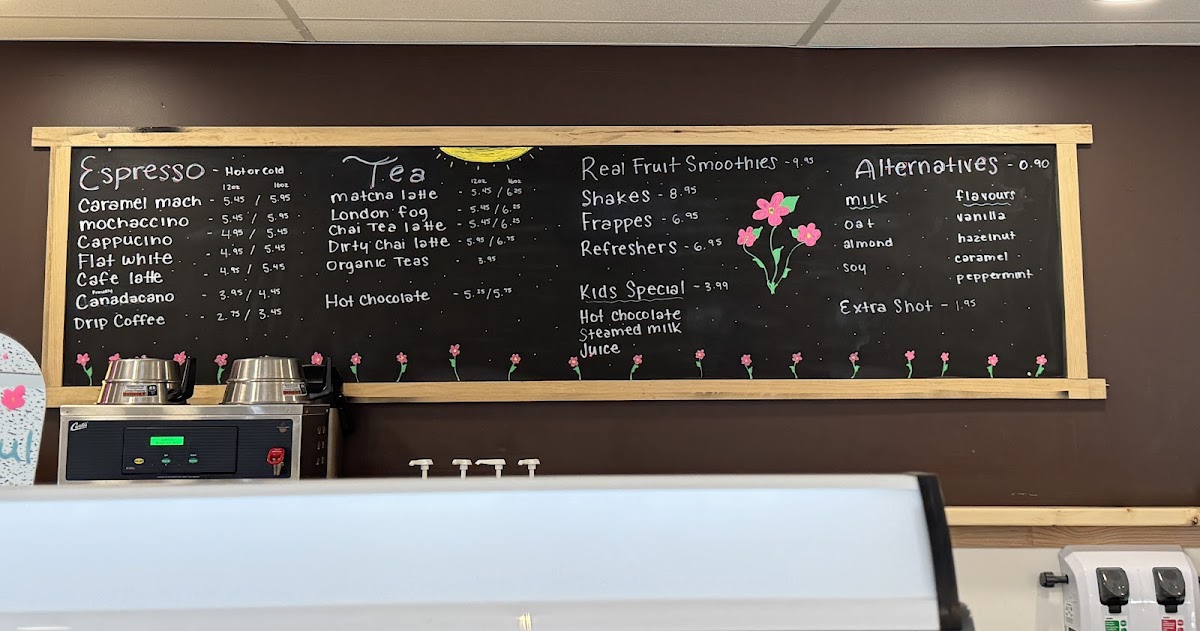 Espresso - Hot or cold
12oz 16oz
Caramel mach - 5.45 / 5.95
mochaccino - 5.45 / 5.95
Cappucino - 4.95 / 5.45
Flat white - 4.95 / 5.45
Cafe latte - 4.95 / 5.45
Canadacano - 3.95 / 4.45
Drip Coffee - 2.75 / 3.45
Tea
12oz 16oz
matcha latte - 5.45 / 6.25
London fog - 5.45 / 6.25
Chai Tea latte - 5.45 / 6.25
Dirty Chai latte - 5.95 / 6.75
Organic Teas - 3.95
Hot Chocolate - 5.25 / 5.75
Real Fruit Smoothies - 9.95
Shakes - 8.95
Frappes - 6.95
Refreshers - 6.95
Kids Special - 3.99
Hot chocolate
Steamed milk
Juice
Alternatives - 0.90
milk
oat
almond
soy
flavours
vanilla
hazelnut
caramel
peppermint
Extra Shot - 1.95
Curtis